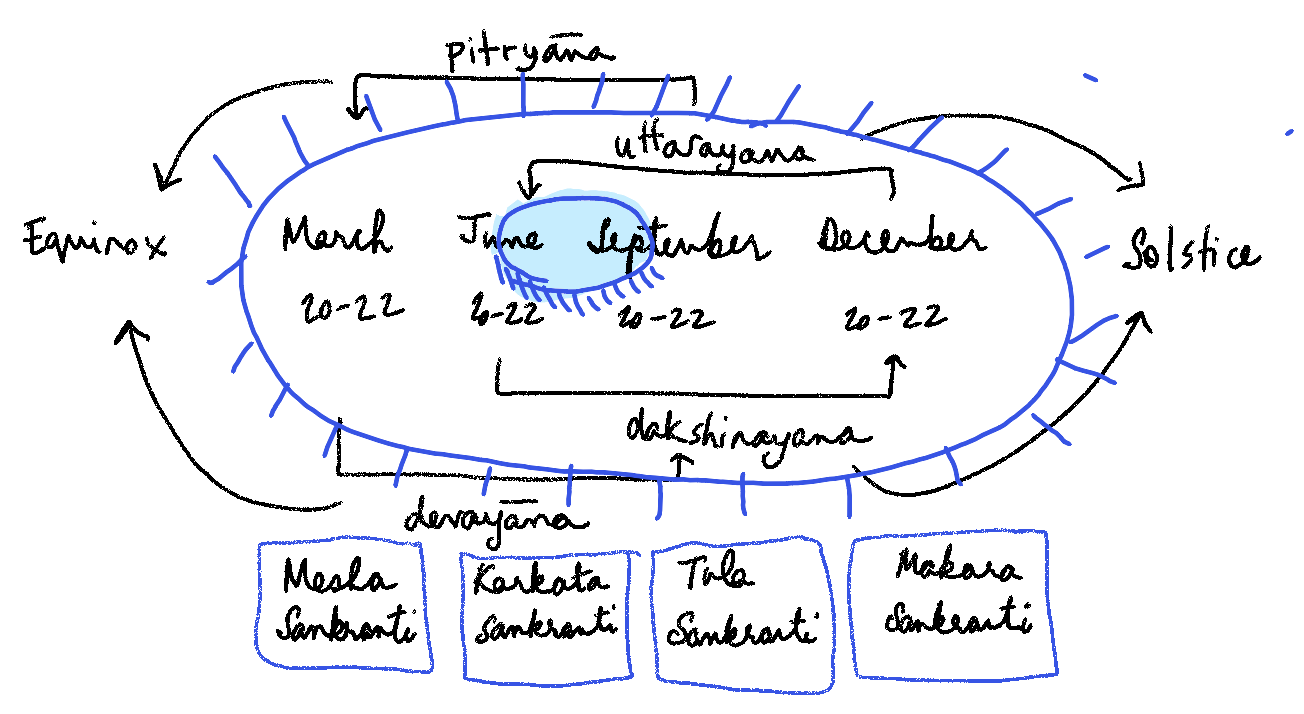 pitryāna
uttarayana
Equinox March June September December Solstice
20-22 20-22 20-22 20-22
dakshinayana
devayāna
Mesha Karkata Tula Makara
Sankranti Sankranti Sankranti Sankranti